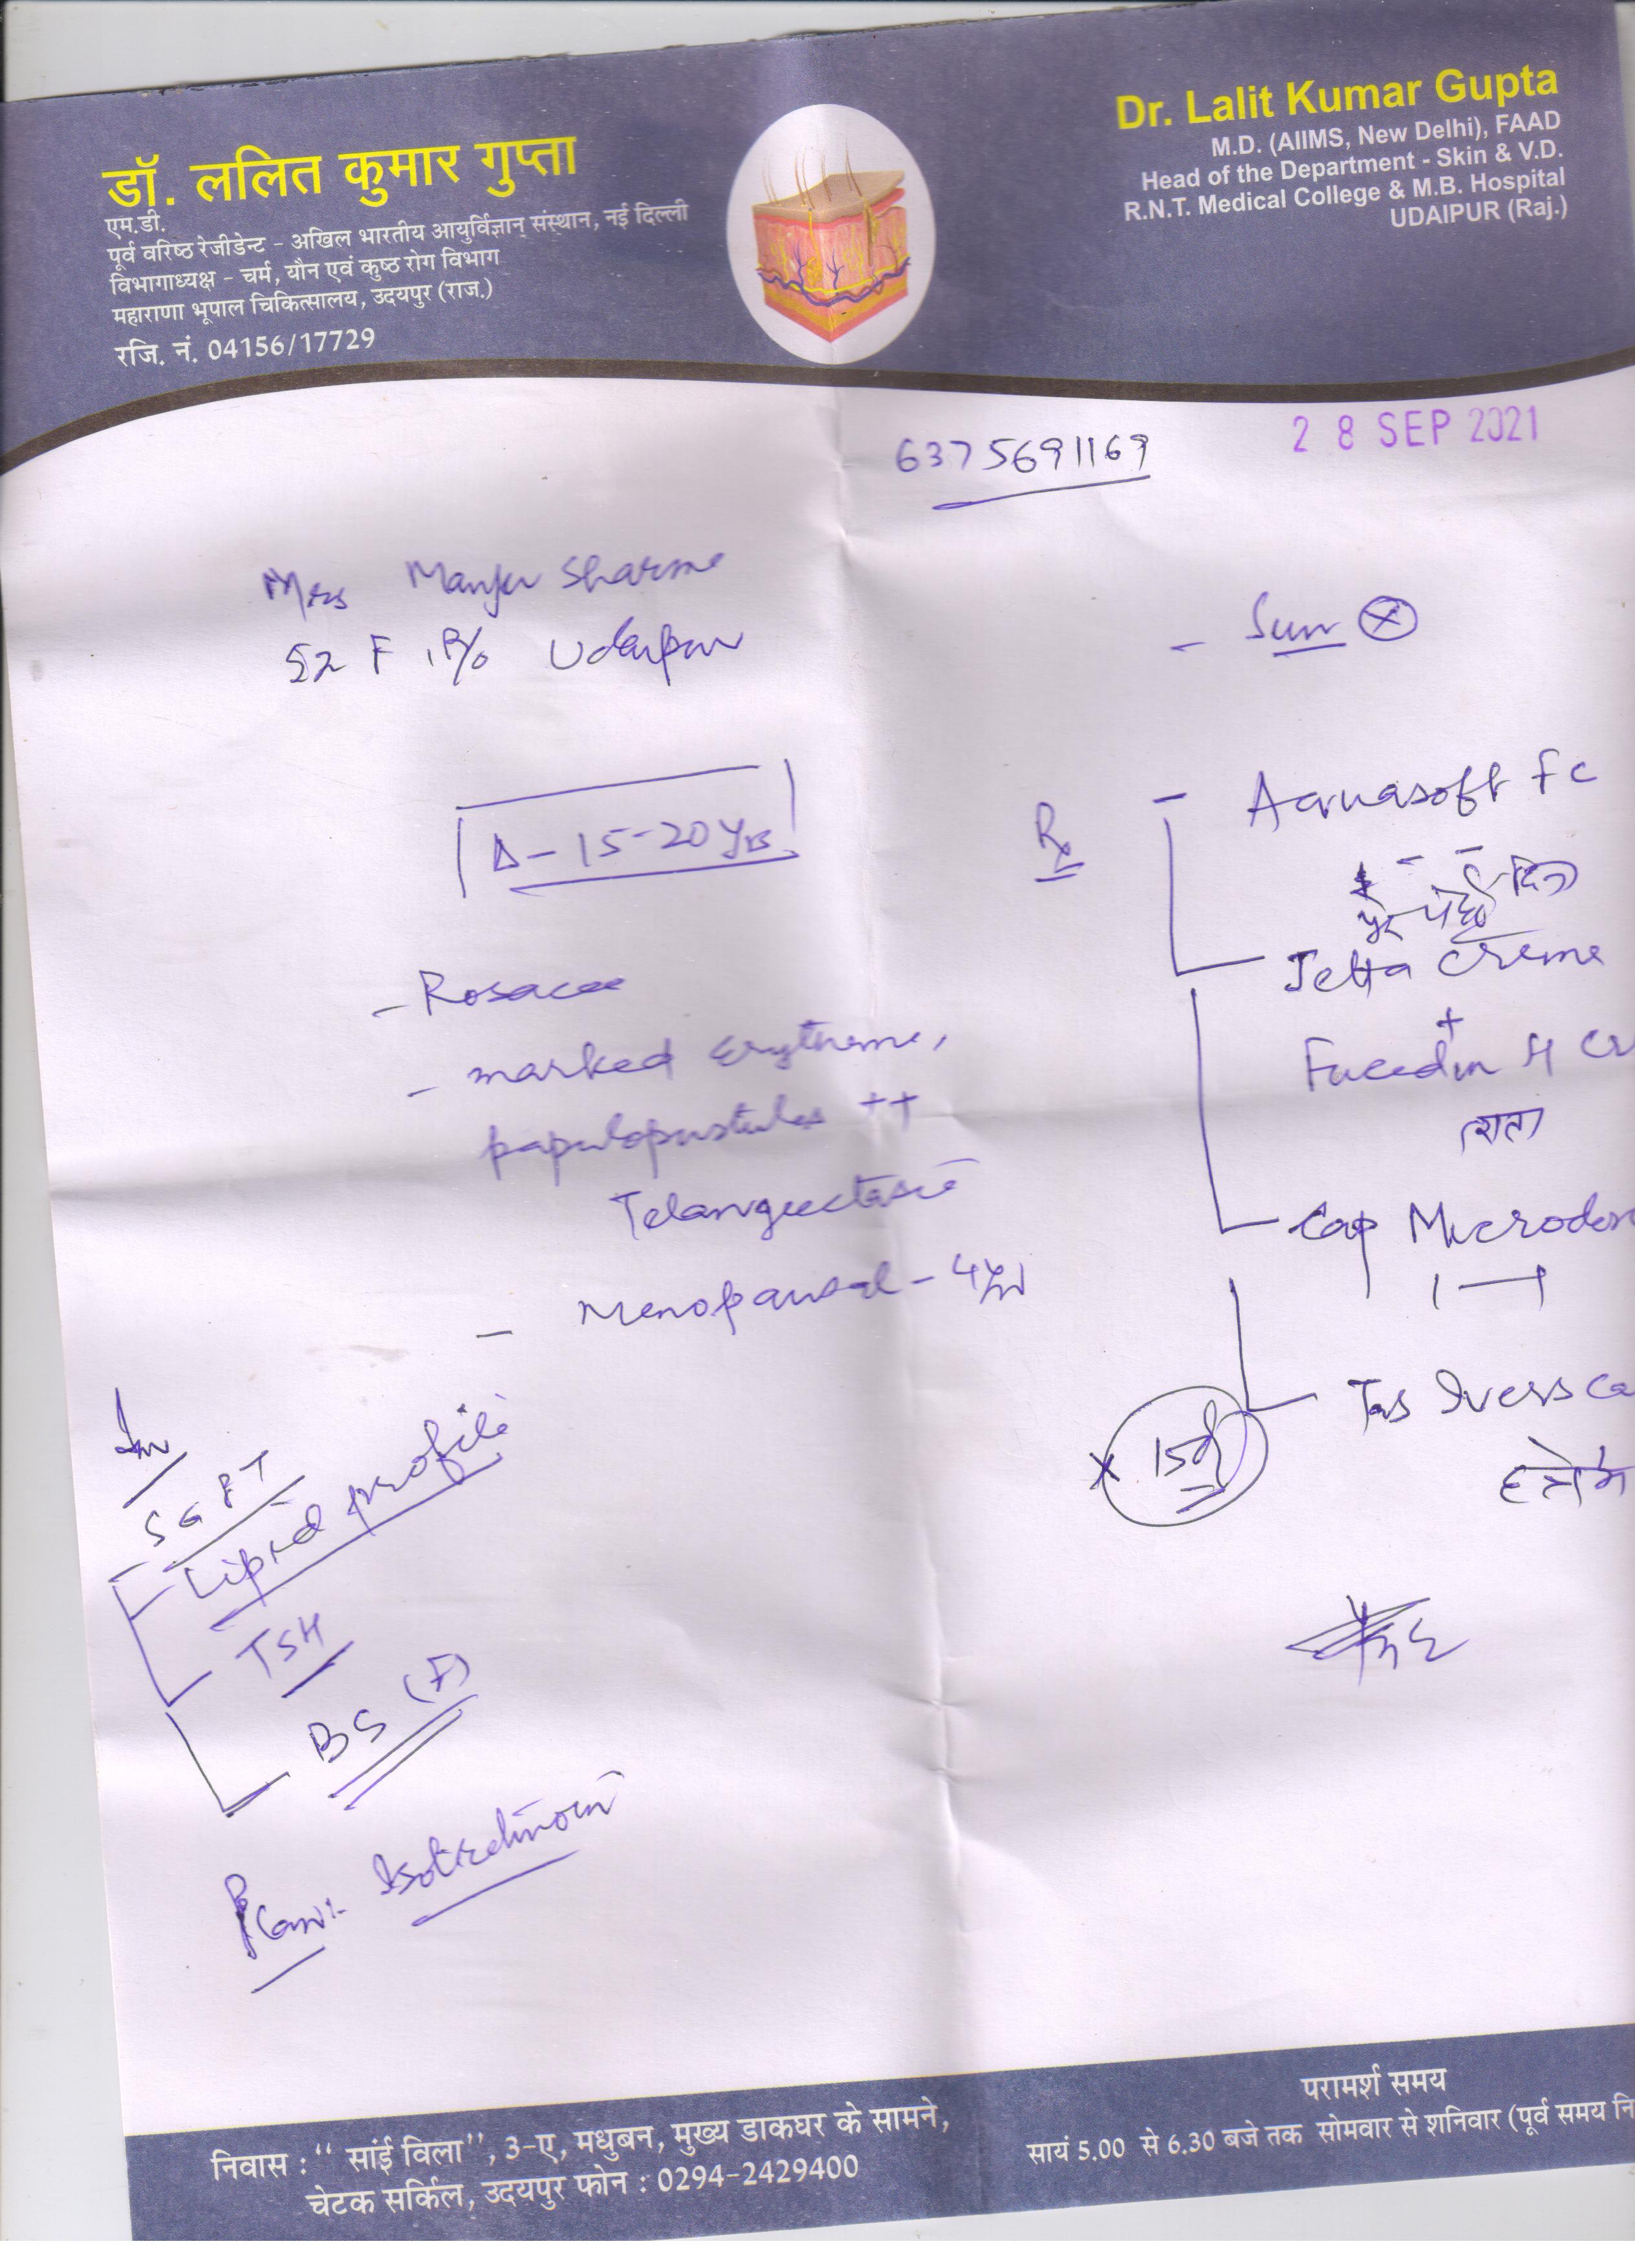 डॉ. ललित कुमार गुप्ता
एम.डी.
पूर्व वरिष्ठ रेजीडेन्ट - अखिल भारतीय आयुर्विज्ञान् संस्थान, नई दिल्ली
विभागाध्यक्ष - चर्म, यौन एवं कुष्ठ रोग विभाग
महाराणा भूपाल चिकित्सालय, उदयपुर (राज.)
रजि. नं. 04156/17729
Dr. Lalit Kumar Gupta
M.D. (AIIMS, New Delhi), FAAD
Head of the Department - Skin & V.D.
R.N.T. Medical College & M.B. Hospital
UDAIPUR (Raj.)
28 SEP 2021
6375691169
Mrs Manju Sharma
52 F, R/o Udaipur
Δ - 15-20 yrs
- Rosacea
- marked erytheme,
papulopustules ++
Telangiectasia
- Menopausal - 4 yrs
Inv
SGPT
Lipid profile
TSH
BS (F)
Plan:- Isotretinoin
- Sun ⊗
Rx
- Acnasoft FC
Jetta creme
+
Fucidin H Cr
रात
Cap Microdox
1 — 1
Tab
x 15d
निवास : “ सांई विला”, 3-ए, मधुबन, मुख्य डाकघर के सामने,
चेटक सर्किल, उदयपुर फोन : 0294-2429400
परामर्श समय
सायं 5.00 से 6.30 बजे तक सोमवार से शनिवार (पूर्व समय नि